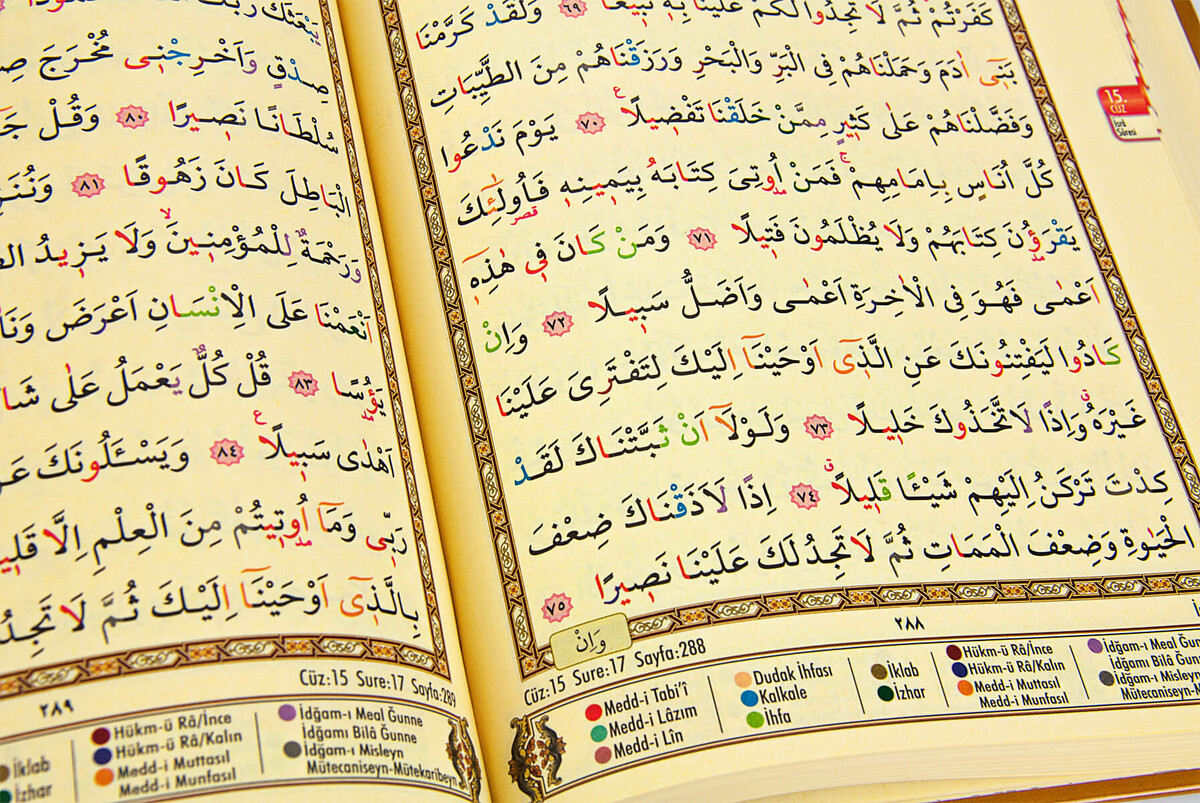 كَفَرْتُمْ ثُمَّ لَا تَجِدُوا لَكُمْ عَلَيْنَا بِهِ تَبِيعًا ٦٩ وَلَقَدْ كَرَّمْنَا
بَنِىٓ اٰدَمَ وَحَمَلْنَاهُمْ فِى الْبَرِّ وَالْبَحْرِ وَرَزَقْنَاهُمْ مِنَ الطَّيِّبَاتِ
وَفَضَّلْنَاهُمْ عَلٰى كَثِيرٍ مِمَّنْ خَلَقْنَا تَفْضِيلًا ٧٠ يَوْمَ نَدْعُوا
كُلَّ اُنَاسٍ بِاِمَامِهِمْ فَمَنْ اُوتِىَ كِتَابَهُ بِيَمِينِهِ فَاُولٰٓئِكَ
يَقْرَؤُنَ كِتَابَهُمْ وَلَا يُظْلَمُونَ فَتِيلًا ٧١ وَمَنْ كَانَ فِى هٰذِهِ
اَعْمٰى فَهُوَ فِى الْاٰخِرَةِ اَعْمٰى وَاَضَلُّ سَبِيلًا ٧٢ وَاِنْ
كَادُوا لَيَفْتِنُونَكَ عَنِ الَّذِىٓ اَوْحَيْنَٓا اِلَيْكَ لِتَفْتَرِىَ عَلَيْنَا
غَيْرَهُ وَاِذًا لَاتَّخَذُوكَ خَلِيلًا ٧٣ وَلَوْلَٓا اَنْ ثَبَّتْنَاكَ لَقَدْ
كِدْتَ تَرْكَنُ اِلَيْهِمْ شَيْـًٔا قَلِيلًا ٧٤ اِذًا لَاَذَقْنَاكَ ضِعْفَ
الْحَيٰوةِ وَضِعْفَ الْمَمَاتِ ثُمَّ لَا تَجِدُ لَكَ عَلَيْنَا نَصِيرًا ٧٥
وَاِنْ
٢٨٨
Cüz:15 Sure:17 Sayfa:288
Medd-i Tabi'î
Medd-i Lâzım
Medd-i Lîn
Dudak İhfası
Kalkale
İhfa
İklab
İzhar
Hükm-ü Râ/İnce
Hükm-ü Râ/Kalın
Medd-i Muttasıl
Medd-i Munfasıl
İdğam-ı Meal Ğunne
İdğamı Bilâ Ğunne
İdğam-ı Misleyn
15.
CÜZ
İsrâ
Sûresi
صِدْقٍ وَاَخْرِجْنِى مُخْرَجَ
سُلْطَانًا نَصِيرًا ٨٠ وَقُلْ
الْبَاطِلَ كَانَ زَهُوقًا ٨١
وَرَحْمَةٌ لِلْمُؤْمِنِينَ وَلَا يَزِيدُ
اَنْعَمْنَا عَلَى الْاِنْسَانِ اَعْرَضَ
يَؤُسًا ٨٣ قُلْ كُلٌّ يَعْمَلُ عَلٰى
اَهْدٰى سَبِيلًا ٨٤ وَيَسْـَٔلُونَكَ
رَبِّى وَمَٓا اُوتِيتُمْ مِنَ الْعِلْمِ اِلَّا
بِالَّذِىٓ اَوْحَيْنَٓا اِلَيْكَ ثُمَّ لَا
Cüz:15 Sure:17 Sayfa:289
٢٨٩
İklab
İzhar
Hükm-ü Râ/İnce
Hükm-ü Râ/Kalın
Medd-i Muttasıl
Medd-i Munfasıl
İdğam-ı Meal Ğunne
İdğamı Bilâ Ğunne
İdğam-ı Misleyn
Mütecaniseyn-Mütekaribeyn